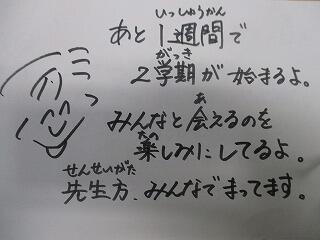 いっしゅうかん
あと1週間で
がっき
2学期が始まるよ。
あ
みんなと会えるのを
たの
楽しみにしてるよ。
せんせいがた
先生方、みんなでまってます。